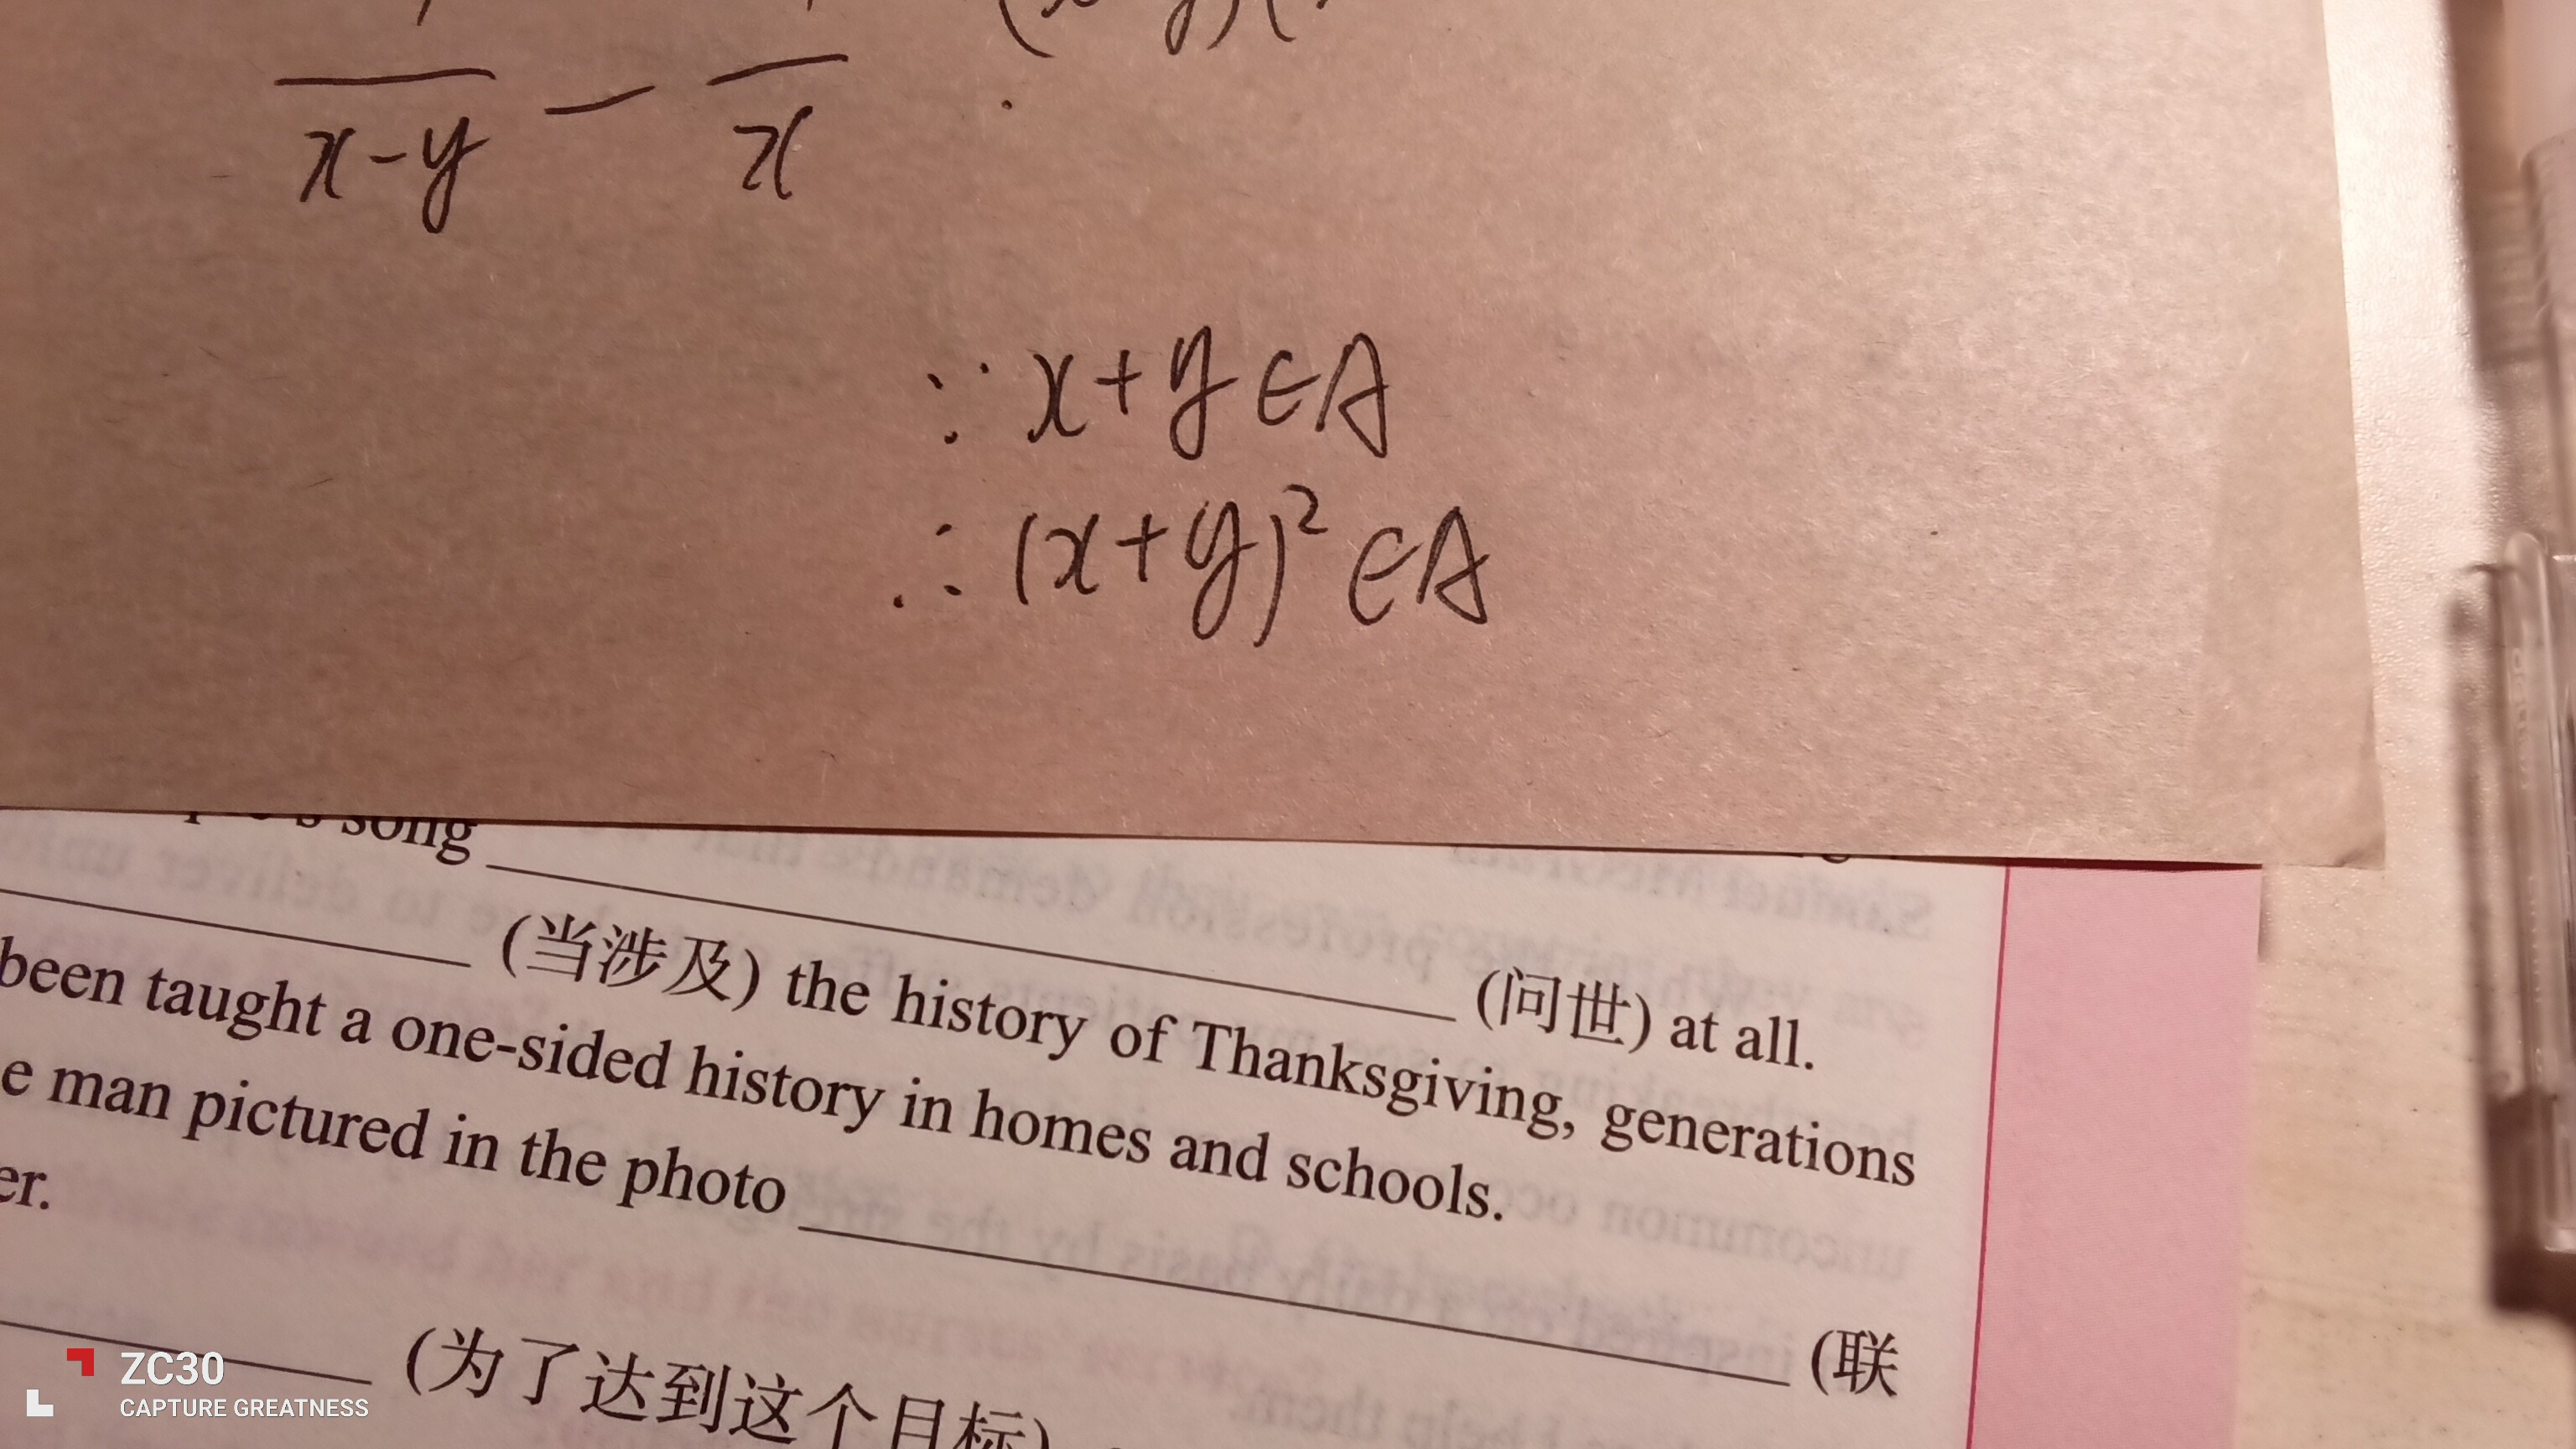 x-y — x
∵ x+y∈A
∴ (x+y)²∈A
's song ____ (问世) at all.
____ (当涉及) the history of Thanksgiving, generations
been taught a one-sided history in homes and schools.
e man pictured in the photo ____ (联
er.
____ (为了达到这个目标)
ZC30
CAPTURE GREATNESS